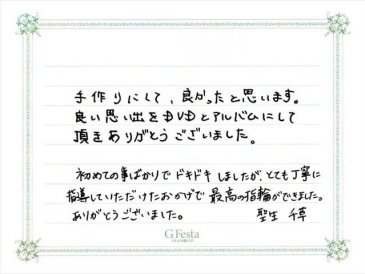 手作りにして、良かったと思います。
良い思い出をDVDとアルバムにして
頂きありがとうございました。
初めての事ばかりでドキドキしましたが、とても丁寧に
指導していただけたおかげで最高の指輪ができました。
ありがとうございました。 聖生 千草
G.Festa